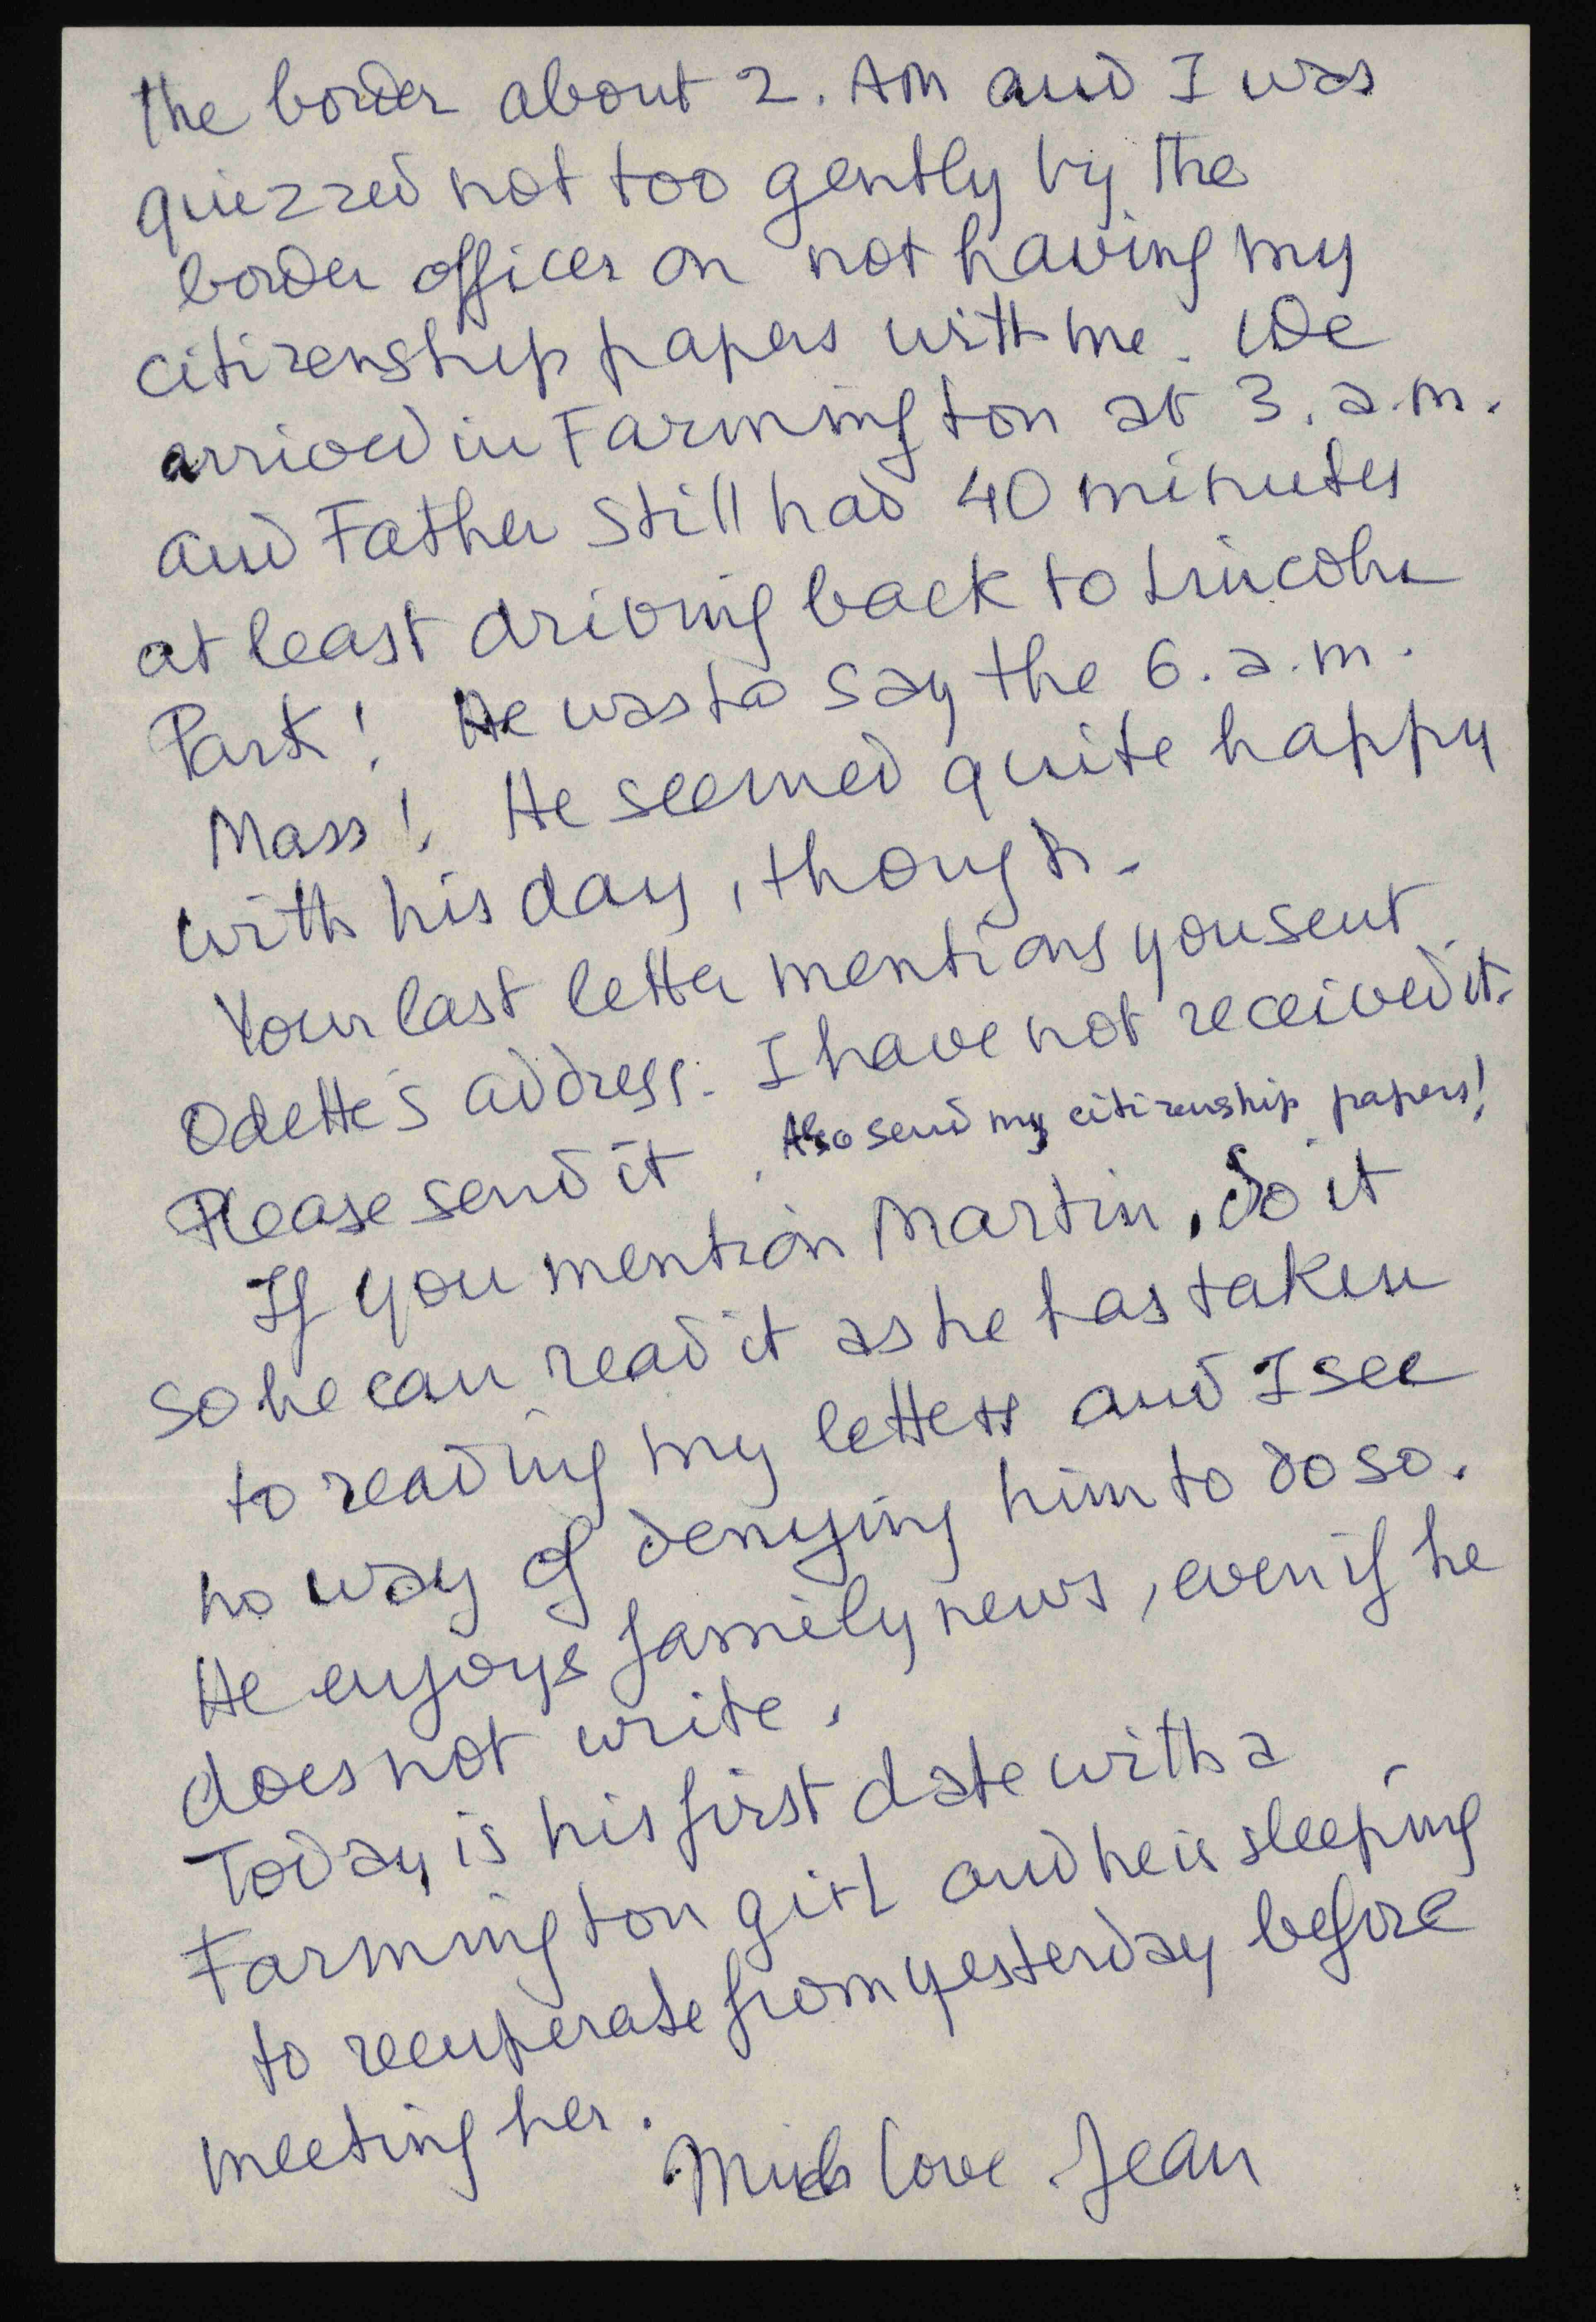 the border about 2. AM and I was
quiezzed not too gently by the
border officer on not having my
citizenship papers with me. We
arrived in Farmington at 3. a.m.
and Father still had 40 minutes
at least driving back to Lincoln
Park! He was to say the 6. a.m.
Mass! He seemed quite happy
with his day, though.
Your last letter mentions you sent
Odette's address. I have not received it.
Please send it. Also send my citizenship papers!
If you mention Martin, do it
so he can read it as he has taken
to reading my letters and I see
no way of denying him to do so.
He enjoys family news, even if he
does not write.
Today is his first date with a
Farmington girl and he is sleeping
to recuperate from yesterday before
meeting her.
Much love Jean